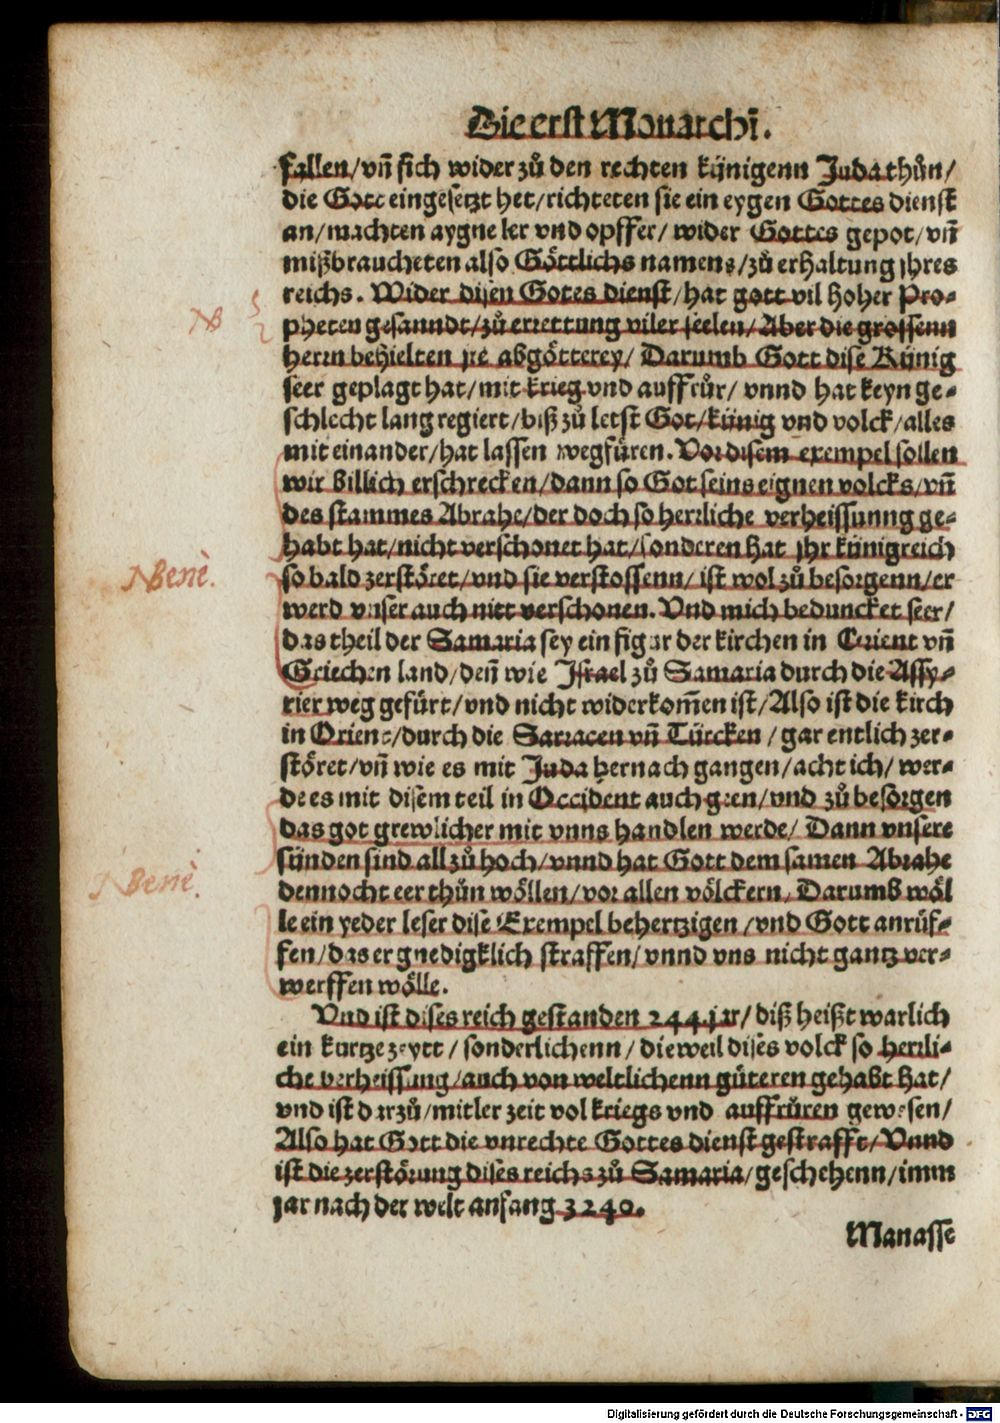 Die erst Monarchi.
fallen/vñ sich wider zů den rechten künigenn Juda thůn/
die Gott eingesetzt het/richteten sie ein eygen Gottes dienst
an/machten aygne ler vnd opffer/ wider Gottes gepot/vñ
mißbraucheten also Göttlichs namens/zů erhaltung jhres
reichs. Wider disen Gotes dienst/hat gott vil hoher Pro-
NB
pheten gesanndt/zů errettung viler seelen/Aber die grossenn
herrn behielten jre abgötterey/ Darumb Gott dise Künig
seer geplagt hat/mit krieg vnd auffrůr/ vnnd hat keyn ge-
schlecht lang regiert/biß zů letst Got/künig vnd volck/alles
mit einander/hat lassen wegfüren. Vor disem exempel sollen
wir billich erschrecken/dann so Got seins eignen volcks/vñ
des stammes Abrahe/der doch so herrliche verheissunng ge-
habt hat/nicht verschonet hat/sonderen hat jhr künigreich
NBenè.
so bald zerstöret/vnd sie verstossenn/ ist wol zů besorgenn/er
werd vnser auch nitt verschonen. Vnd mich beduncket seer/
das theil der Samaria sey ein figur der kirchen in Orient vñ
Griechen land/deñ wie Israel zů Samaria durch die Assy-
rier weg gefürt/vnd nicht widerkom̃en ist/Also ist die kirch
in Orient/durch die Sarracen vñ Türcken /gar entlich zer-
störet/vñ wie es mit Juda hernach gangen/acht ich/ wer-
de es mit disem teil in Occident auch geen/vnd zů besorgen
das got grewlicher mit vnns handlen werde/ Dann vnsere
sünden sind all zů hoch/vnnd hat Gott dem samen Abrahe
NBenè.
dennocht eer thůn wöllen/vor allen völckern, Darumb wöl
le ein yeder leser dise Exempel behertzigen /vnd Gott anrůf-
fen/das er gnedigklich straffen/vnnd vns nicht gantz ver-
werffen wölle.
Vnd ist dises reich gestanden 244.jar/ diß heißt warlich
ein kurtze zeytt / sonderlichenn / dieweil dises volck so herrli-
che verheissung/auch von weltlichenn güteren gehabt hat/
vnd ist darzů/mitler zeit vol kriegs vnd auffrůren gewesen/
Also hat Gott die vnrechte Gottes dienst gestrafft/Vnnd
ist die zerstörung dises reichs zů Samaria/geschehenn/imm
jar nach der welt anfang 3240.
Manasse
Digitalisierung gefördert durch die Deutsche Forschungsgemeinschaft - DFG